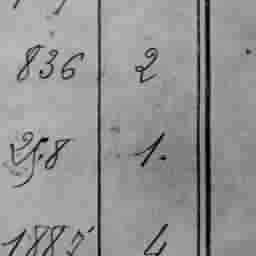 836 2
258 1.
1887 4